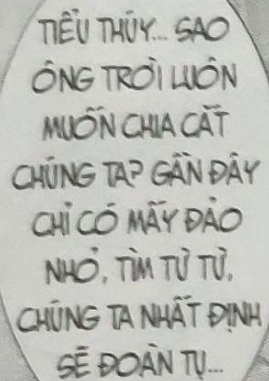 TIỂU THÚY... SAO
ÔNG TRỜI LUÔN
MUỐN CHIA CẮT
CHÚNG TA? GẦN ĐÂY
CHỈ CÓ MẤY ĐẢO
NHỎ, TÌM TỪ TỪ,
CHÚNG TA NHẤT ĐỊNH
SẼ ĐOÀN TỤ...